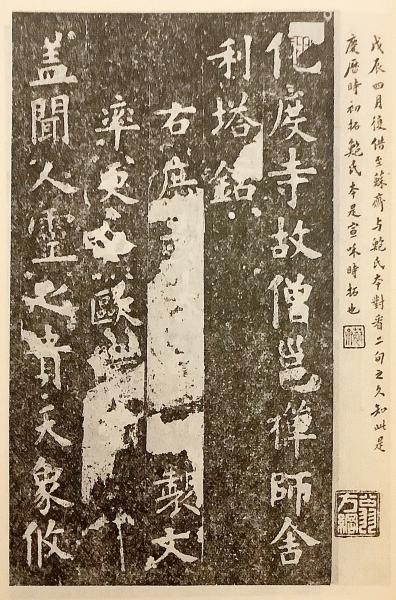 戊辰四月復借至蘇齋与鮑氏本對看二旬之久知此是
慶曆時初拓鮑氏本是宣咊時拓也
翁方綱
化度寺故僧邕禪師舍
利塔銘
右庶 製文
率更令歐
盖聞人靈之貴天象攸